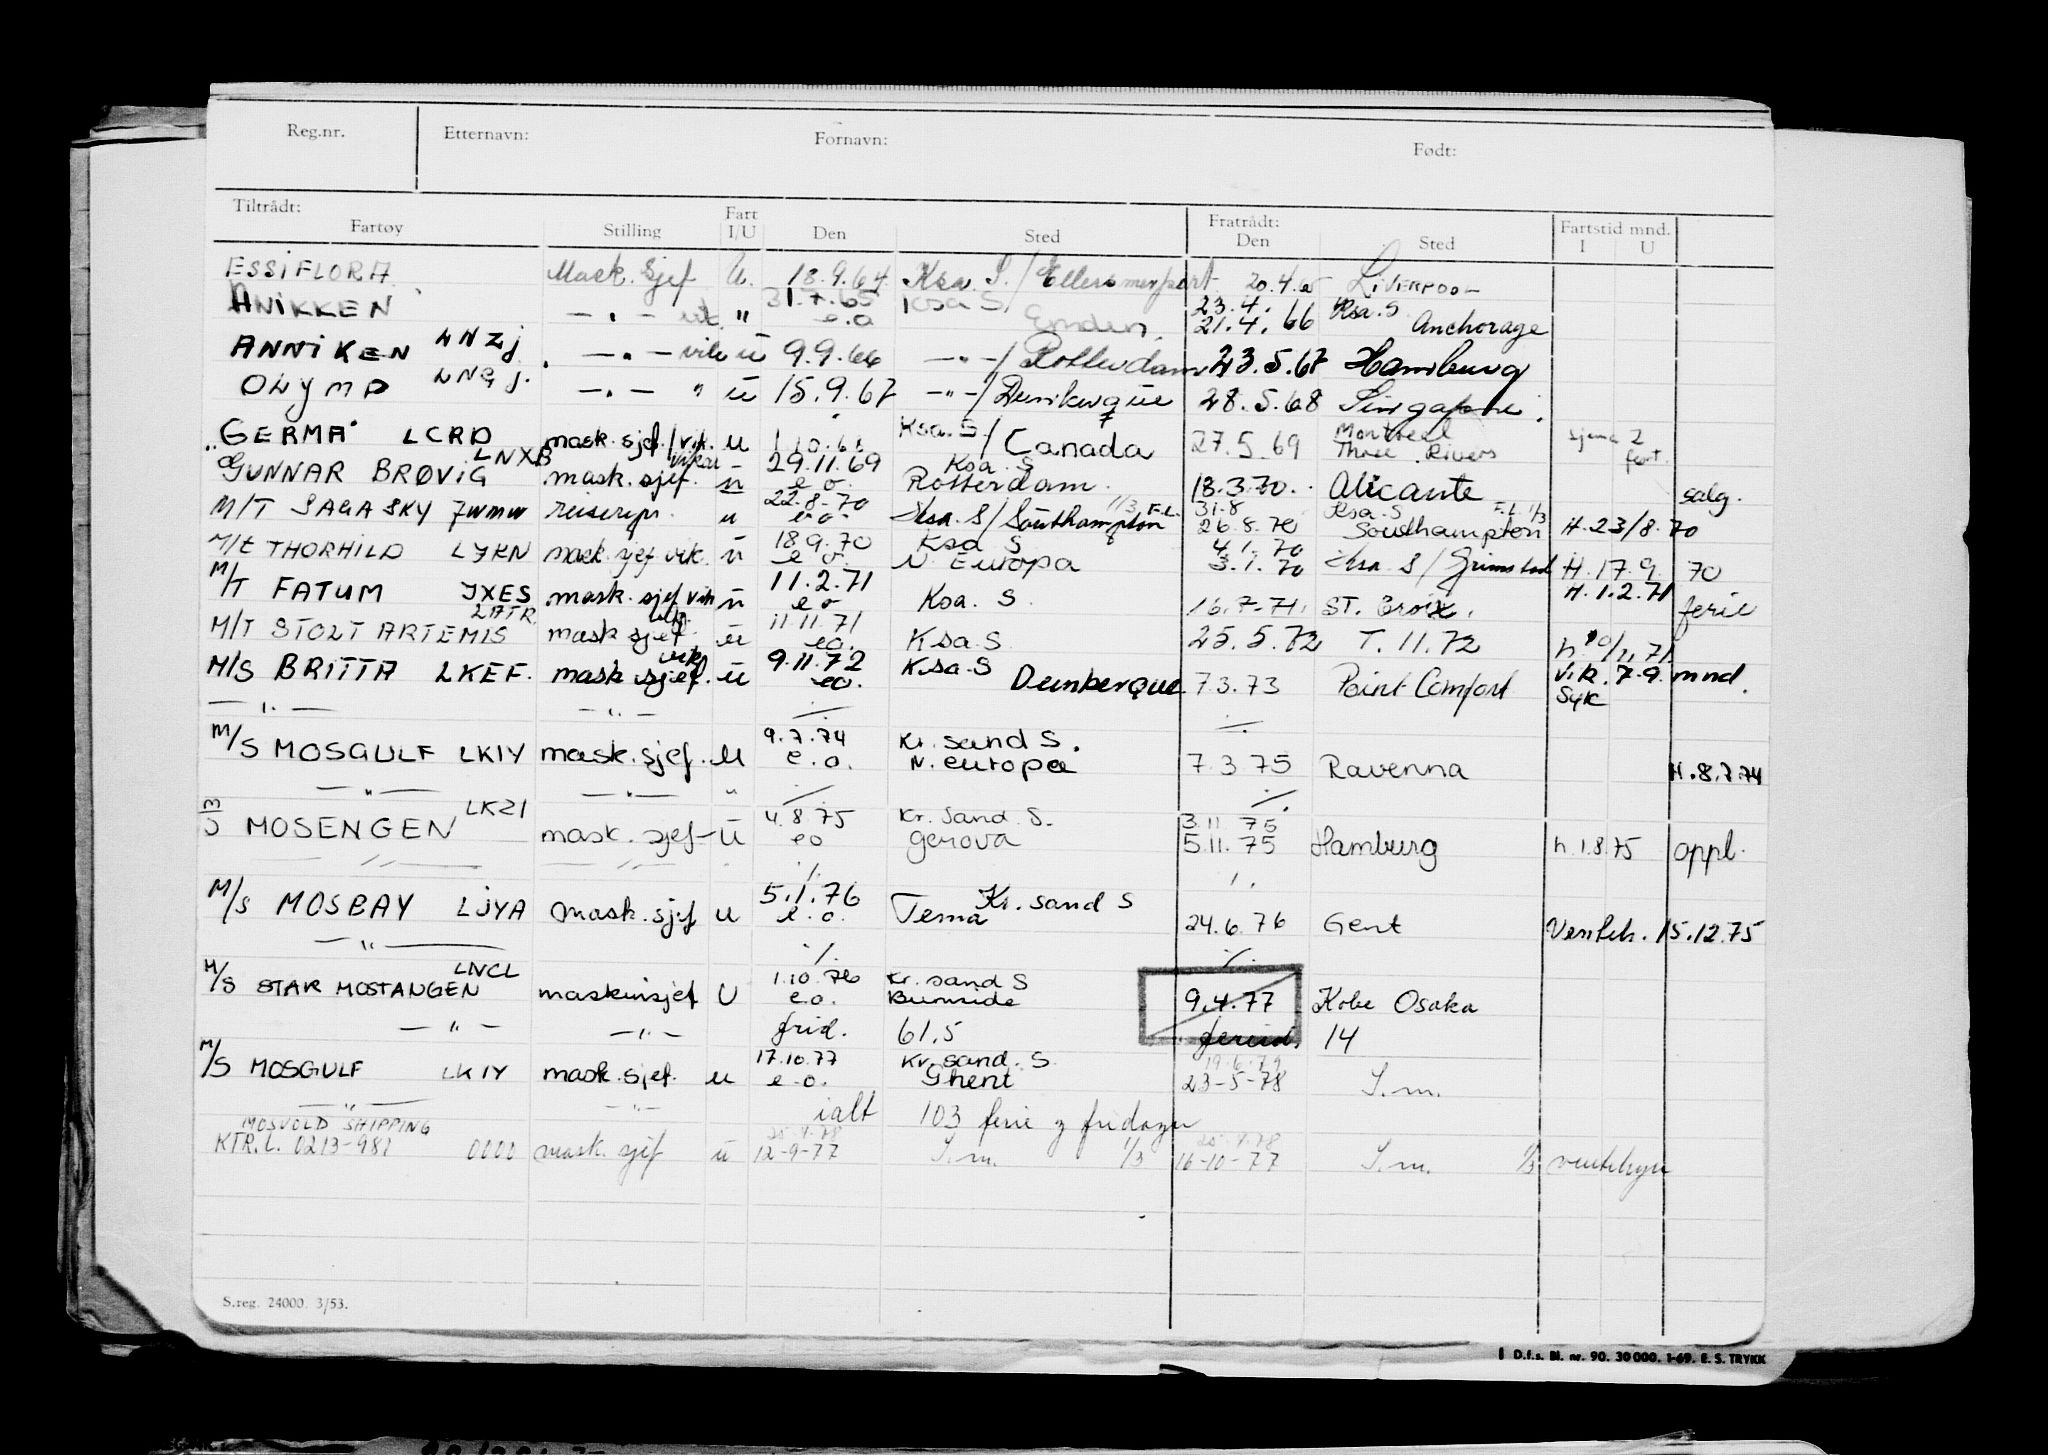 Reg.nr. Etternavn: Fornavn: Født:
Tiltrådt: Fratrådt:
Fartøy Stilling Fart I/U Den Sted Den Sted Fartstid mnd. I U
ESSIFLORA Mask. Sjef U. 18.9.64 Ksa. S./Ellersmerport 20.4.65 LIVERPOOL
31.7.65 Ksa S. 23.4. Ksa. S
ANIKKEN — " — vik. " e.o Emden. 21.4.66 Anchorage
ANNIKEN LNZJ. — " — vik u 9.9.66 — " —/ Rotterdam 23.5.67 Hamburg
OLYMP LNGJ. — " — " u 15.9.67 — " —/ Dunkerque 28.5.68 Singapore.
"GERMA" LCRD mask. sjef/vik. u 1.10.68 Ksa. S/Canada 27.5.69 Montreal Three Rivers
LNXB vikar 29.11.69 Ksa. S
GUNNAR BRØVIG mask. sjef. u e o. Rotterdam. 18.3.70. Alicante salg.
22.8.70 1/3 F.L. 31.8 Ksa. S F.L. 1/3
M/T SAGA SKY JWMW reiserepr. u e o. Ksa. S/Southampton 26.8.70 Southampton H. 23/8.70
18.9.70 Ksa S 4.1.70
M/T THORHILD LJKN mask. sjef vik. u e o. N. Europa 3.1.70 Ksa S/Grimstad H. 17.9.70
11.2.71 H. 1.2.71
M/T FATUM JXES mask. sjef vik u e o Ksa. S. 16.7.71. ST. Croix. ferie
LATR vik. 11.11.71
M/T STOLT ARTEMIS mask sjef. u eo. Ksa S. 25.5.72 T. 11.72 h. 10/11.71.
vik 9.11.72 Ksa. S vik. 7-9. mnd.
M/S BRITTA LKEF. mask sjef. u eo. Dunkerque 7.3.73 Point Comfort Syk
— " — — " — ./. ./.
9.7.74 Kr. sand S.
M/S MOSGULF LKIY mask. sjef. u e.o. N. europa 7.3 75 Ravenna H. 8.7.74
— " — — " — " ./. ./.
LKZI 4.8 75 Kr. Sand. S. 3.11 75
M/S MOSENGEN mask. sjef — u eo Genova 5.11.75 Hamburg h. 1.8.75 oppl.
— " — — " — ./. ./.
5.1.76 Kr. sand S
M/S MOSBAY LJYA mask. sjef u e.o. Tema 24.6.76 Gent Ventch. 15.12.75
— " — ./. ./.
LNCL 1.10.76 Kr. sand S
M/S STAR MOSTANGEN maskinsjef U e.o. Burnside 9.4.77 Kobe Osaka
— " — — " — frid. 61,5 feried. 14
17.10.77 Kr. sand. S. 19.6.79
M/S MOSGULF LKIY mask. sjef. u e.o. Ghent 23-5-78 S.m.
— " — — " — ialt 103 ferie z fridager
MOSVOLD SHIPPING
KTR. L. 0213-981 0000 mask. sjef u 12-9-77 S.m. 1/3 16-10-77 S.m. 1/3
S.reg. 24000. 3/53.
D.f.s. Bl. nr. 90. 30 000. 1-69. E. S. TRYKK